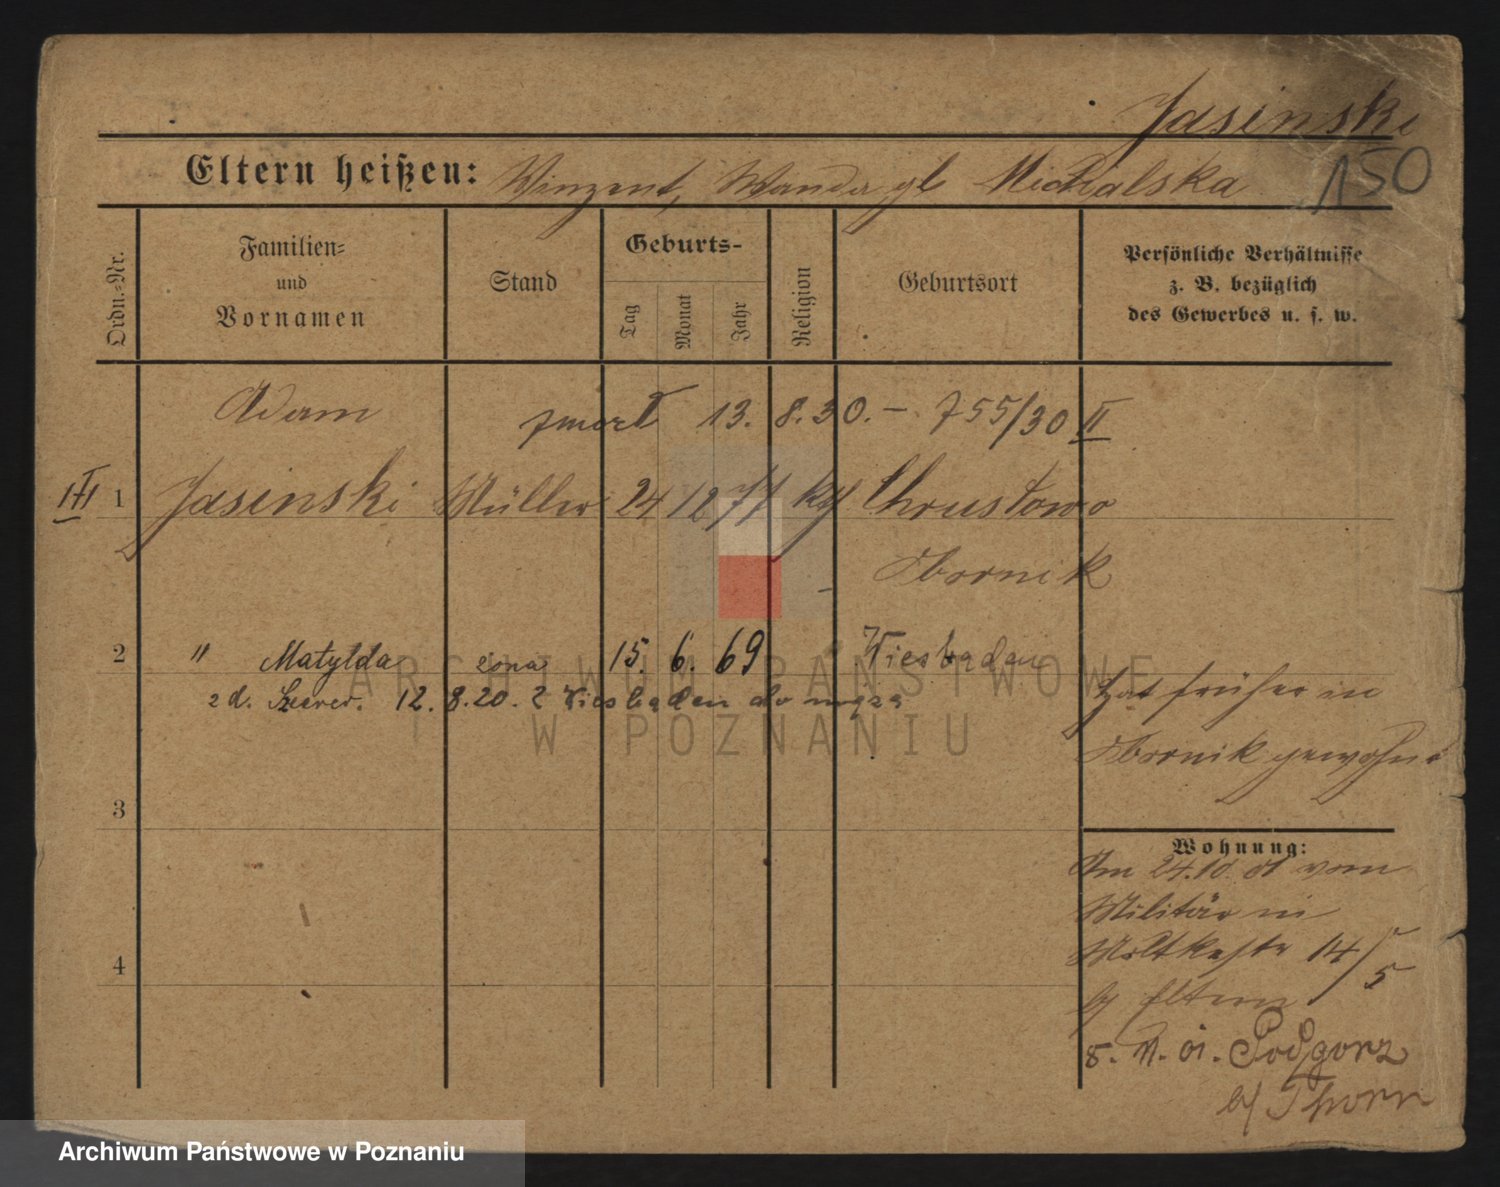 Jasinski
150
Eltern heißen: Vinzent, Wanda gb Michalska
Ordn.-Nr.
Familien-
und
Vornamen
Stand
Geburts-
Tag
Monat
Jahr
Religion
Geburtsort
Persönliche Verhältnisse
z. B. bezüglich
des Gewerbes u. s. w.
Adam
zmarł 13. 8. 30. — 755/30 II
III 1 Jasinski Müller 24 12 77 kth Chrustowo
Obornik
2 " Matylda żona 15. 6. 69 Wiesbaden
z d. 12. 8. 20. z Wiesbaden do męża
Hat früher in
Obornik gewohnt
3
4
Wohnung:
Am 24.10. 01 vom
Militär in
Moltkestr 14/5
b/ Eltern
8. 11. 01. Podgorz
b/ Thorn
ARCHIWUM PAŃSTWOWE
W POZNANIU
Archiwum Państwowe w Poznaniu